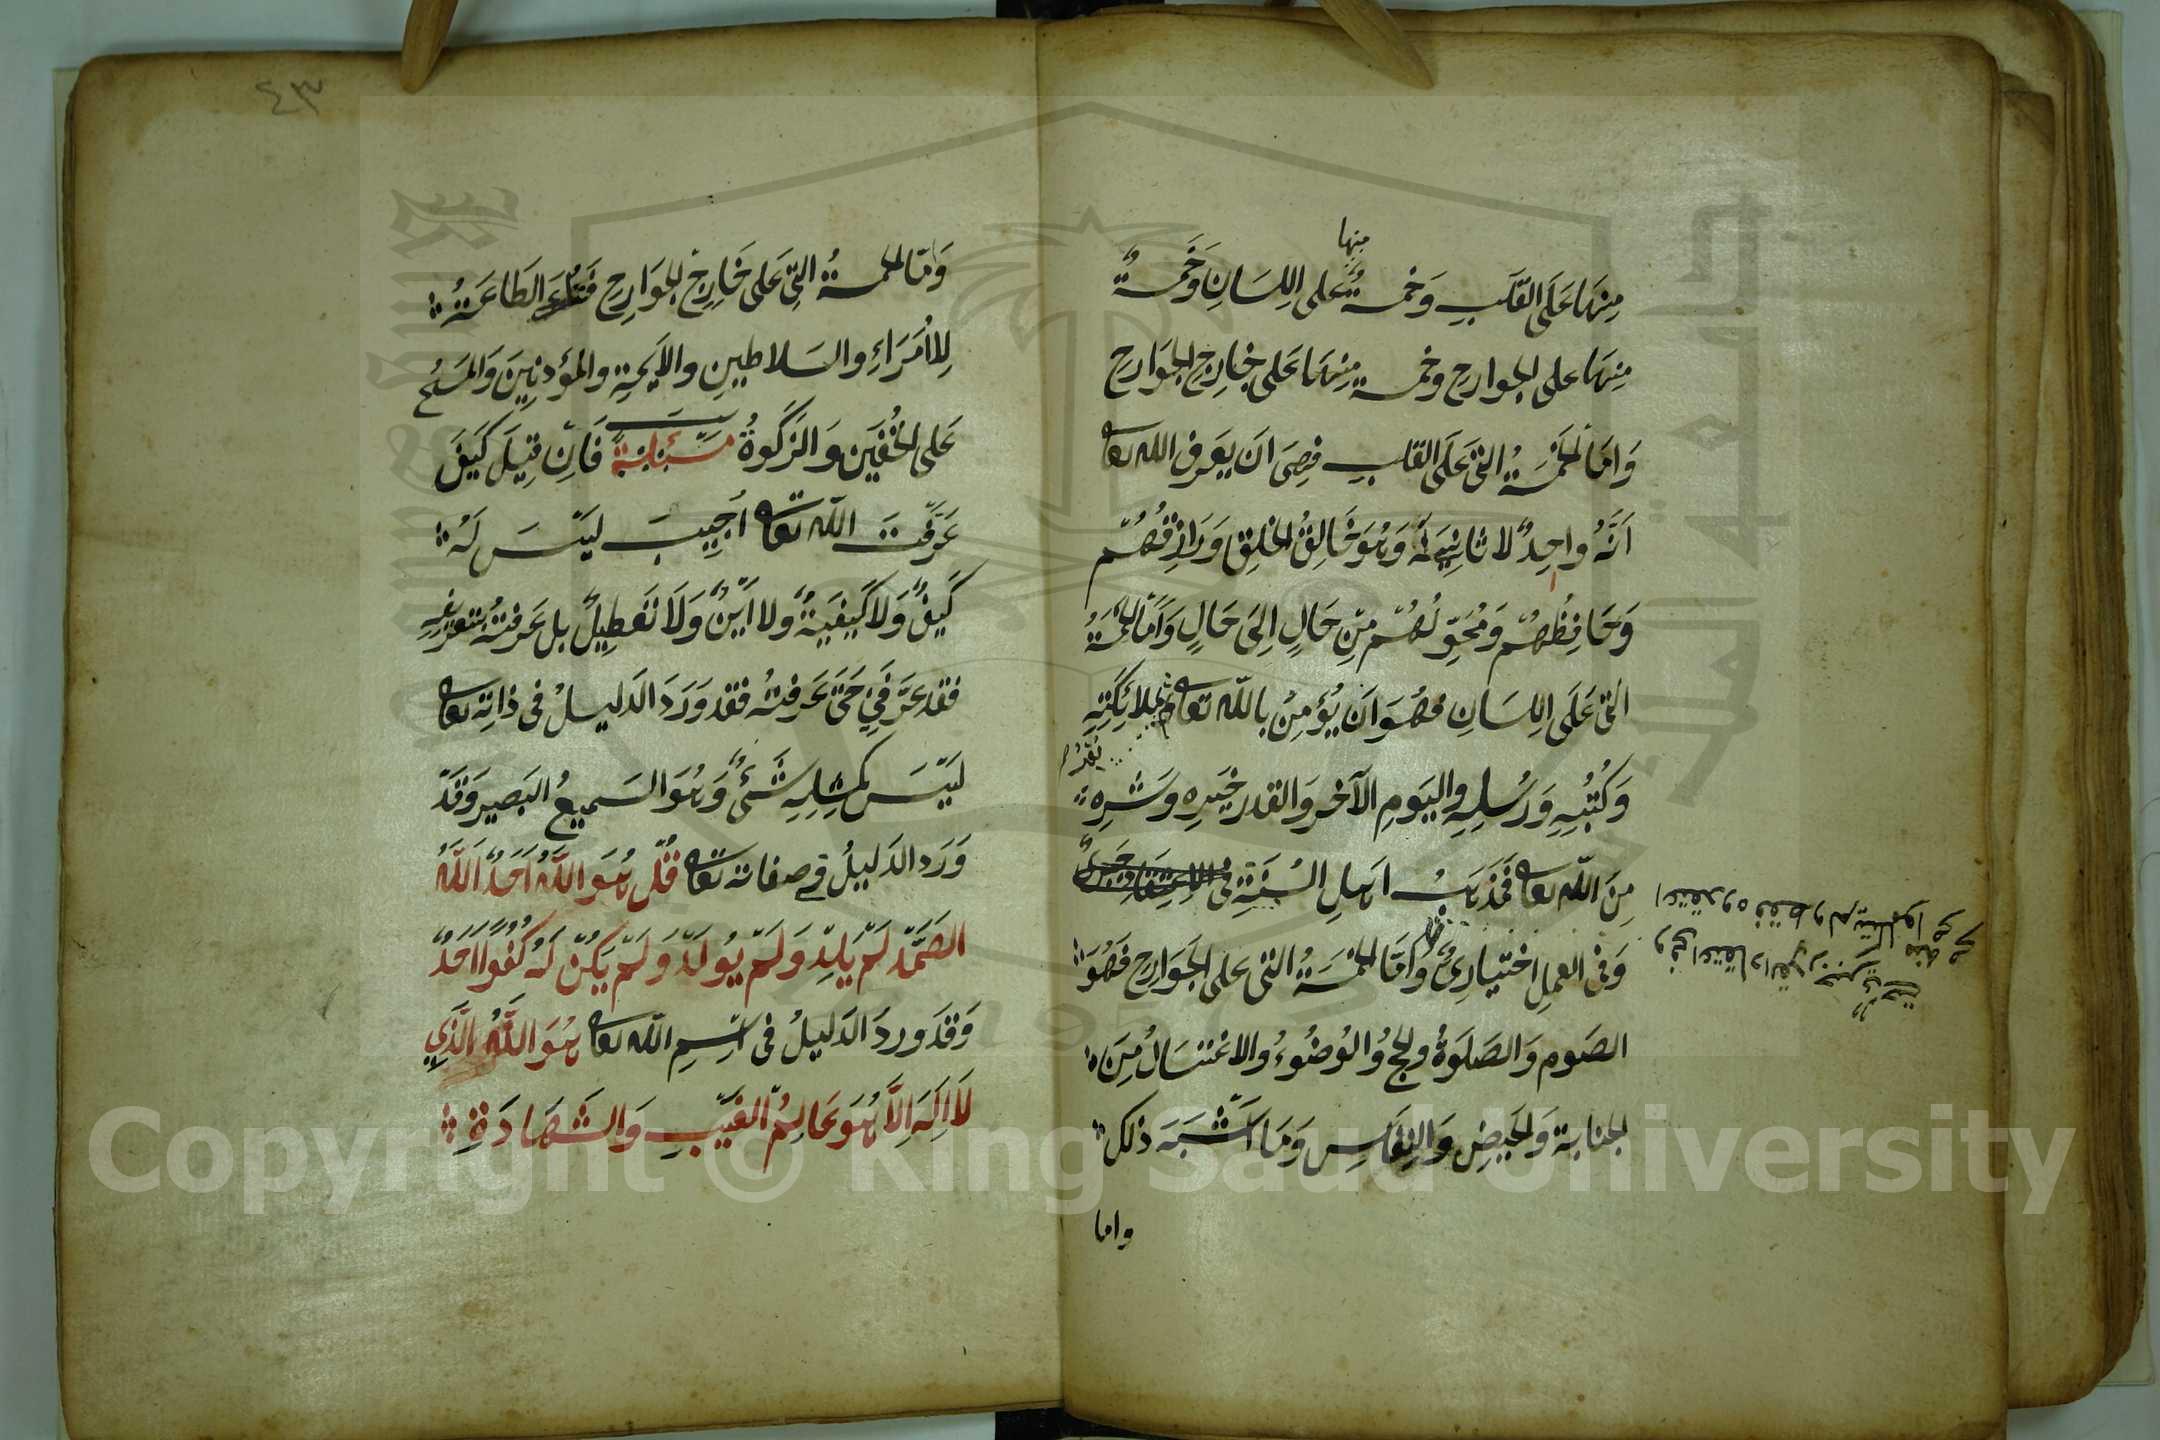 منها
مِنْهَا عَلَى القَلْبِ وَخمسةٌ على اللِسَانِ وَخَمسةٌ
مِنْهَا على الجوارح وخمسة مِنْهَا عَلى خارِج الجَوَارِح
وَامَّا الخَمْسَةُ التى عَلَى القلبِ فهِىَ اَن يَعرِف الله تعا
اَنَّهُ واحِدٌ لا ثانِىَ لَهُ وَهُوَ خَالِقُ الخلقِ وَرَازِقُهُمْ
وَحَافِظُهُمْ وَمُحَوِّلُهُمْ مِنْ حَالٍ اِلىَ حَالٍ وَاَمَّا الخمسَةُ
الَتى عَلَى اللِسَانِ فهُوَ اَن يُؤمِنَ باللّه تعا وَملائِكَتِهِ
وَكُتُبِهِ وَرُسُلِهِ واليَومِ الآخرِ وَالقدرِ خَيْرِهِ وَشَرِهِ
مِنَ اللّه تعا فمَذهَبُ اهلِ السُنَةِ فى الاِعتِقَادِ جَبرِىٌّ
وَفى العملِ اختيارِىٌّ وَاَمَّا الخَمْسَةُ التى على الجَوَارِحِ فهُوَ
الصَوم وَالصَلوَةُ والحجُ والوُضُوءُ والاغتسَالُ مِنَ
الجنابة وَالحَيضِ وَالنِفَاسِ وَمَا اَشْبَهَ ذلك
واما
اعتقدوه فقط ولم يتكلموا
وفى اعتقاد القدر جبرى
٤٣
وَامّا الخمسةُ التِى عَلى خَارِجِ الجوَارِحِ الطَاعَةُ
لِلاُمَرَاءِ والسَلاطينِ والاَئِمةِ والمُؤذنِينَ وَالمَسْحُ
عَلى الخُفَّينِ وَالزكَوةُ مَسْئلةٌ فَاِن قِيلَ كَيْفَ
عَرَفْتَ اللّه تعا اُجِيبَ ليْسَ لَهُ
كَيفٌ وَلا كَيفِيَةٌ ولا اَيْنٌ وَلَا تَعطِيلٌ بل عَرفتُهُ بتعريفِهِ
فقد عَرَّفَنِي حَتى عَرفتُه فقد وَرَدَ الدَليلُ فى ذاتِهِ تعا
ليْسَ كمثلِهِ شَئٌ وَهُوَ السَميعُ البَصير وَقدْ
وَرَد الدَليلُ فى صفاته تعا قُلْ هُوَ اللَّهُ اَحَدٌ اَللَّهُ
الصَمَدُ لَمْ يَلِدْ وَلَمْ يُولَدْ وَلَمْ يَكُنْ لَهُ كُفُوًا اَحَدٌ
وَقدْ وردَ الدَليلُ فى اسْمِ اللّه تعا هُوَ اللَّهُ الَّذِي
لَا اِلَهَ اِلَّا هُوَ عَالِمُ الغَيْبِ وَالشَهَادَةِ
Copyright © King Saud University